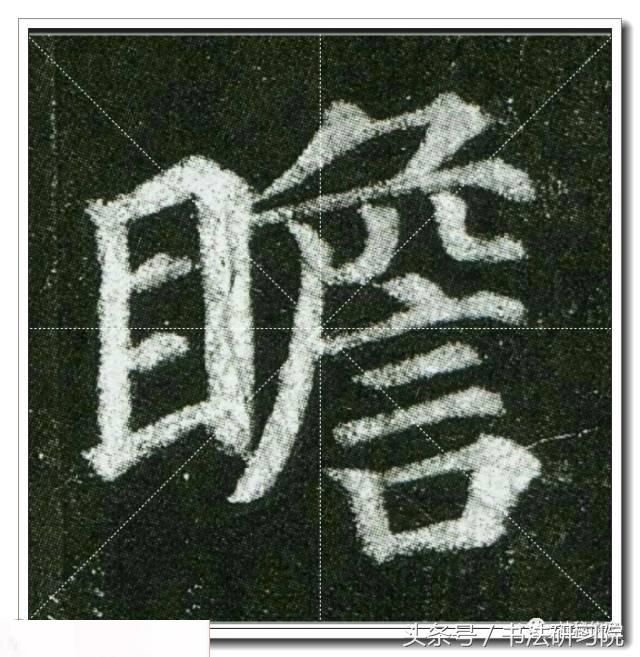 瞻
头条号／书法研习院